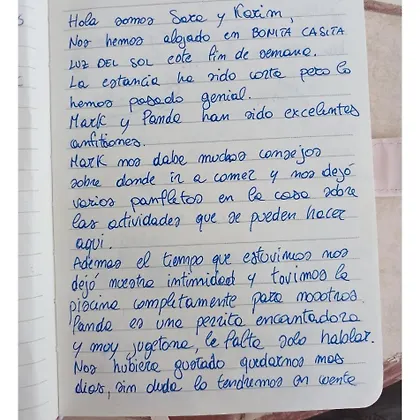 Hola somos Sara y Karim,
Nos hemos alojado en BONITA CASITA
LUZ DEL SOL este fin de semana.
La estancia ha sido corta pero lo
hemos pasado genial.
Mark y Panda han sido excelentes
anfitriones.
Mark nos daba muchos consejos
sobre donde ir a comer y nos dejó
varios panfletos en la casa sobre
las actividades que se pueden hacer
aqui.
Ademas el tiempo que estuvimos nos
dejó nuestra intimidad y tuvimos la
piscina completamente para nosotros.
Panda es una perrita encantadora
y muy jugetona, le falta solo hablar.
Nos hubiera gustado quedarnos mas
dias, sin duda lo tendremos en cuenta